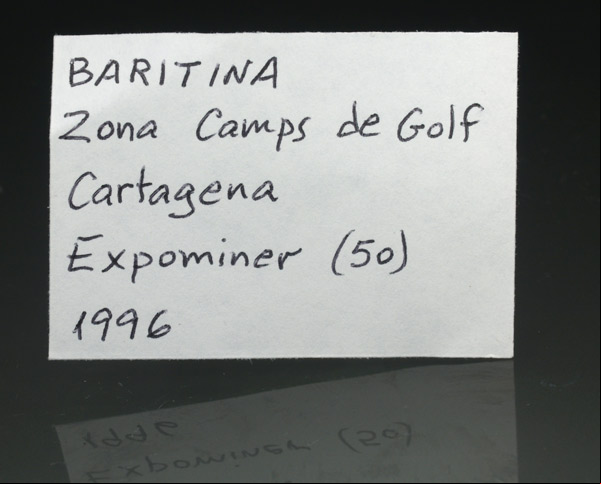 BARITINA
Zona Camps de Golf
Cartagena
Expominer (50)
1996